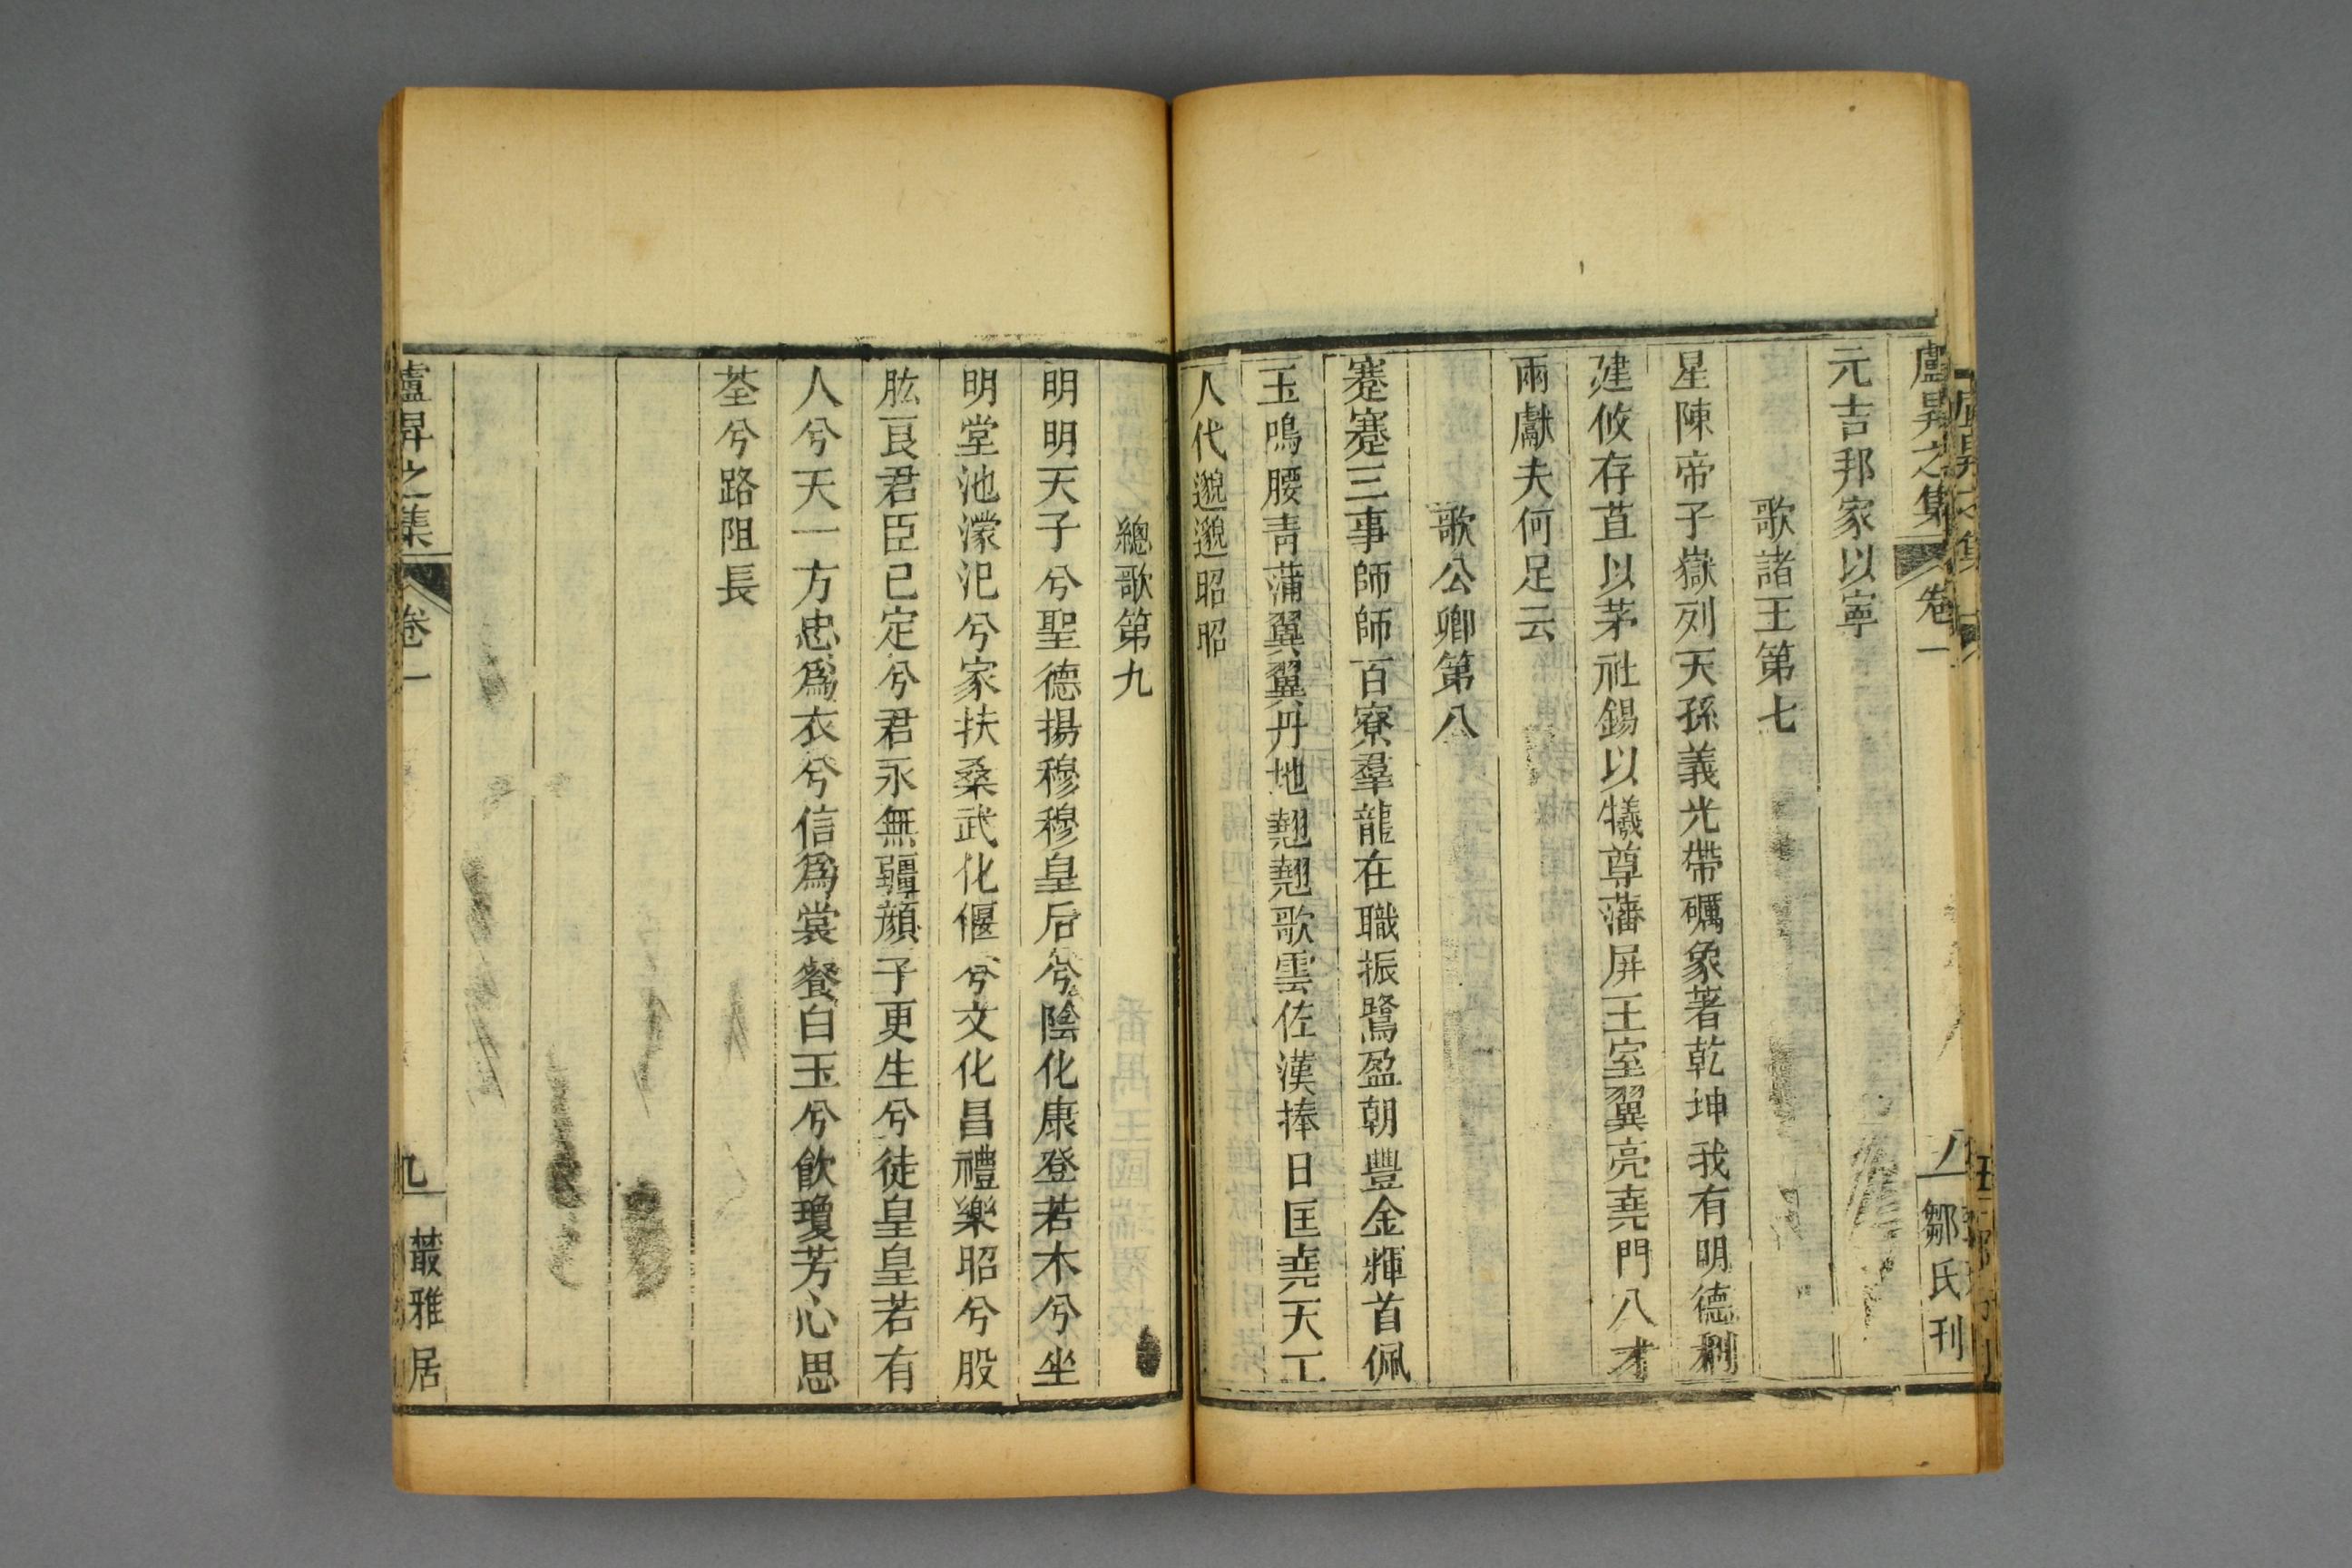 盧昇之集 卷一 八 鄒氏刊
元吉邦家以寧
歌諸王第七
星陳帝子嶽列天孫義光帶礪象著乾坤我有明德利
建攸存苴以茅社錫以犧尊藩屏王室翼亮堯門八才
兩獻夫何足云
歌公卿第八
蹇蹇三事師師百寮羣龍在職振鷺盈朝豐金輝首佩
玉鳴腰青蒲翼翼丹地翹翹歌雲佐漢捧日匡堯天工
人代邈邈昭昭
總歌第九
明明天子兮聖德揚穆穆皇后兮陰化康登若木兮坐
明堂池濛汜兮家扶桑武化偃兮文化昌禮樂昭兮股
肱良君臣已定兮君永無疆顏子更生兮徒皇皇若有
人兮天一方忠爲衣兮信爲裳餐白玉兮飲瓊芳心思
荃兮路阻長
盧昇之集 卷一 九 叢雅居